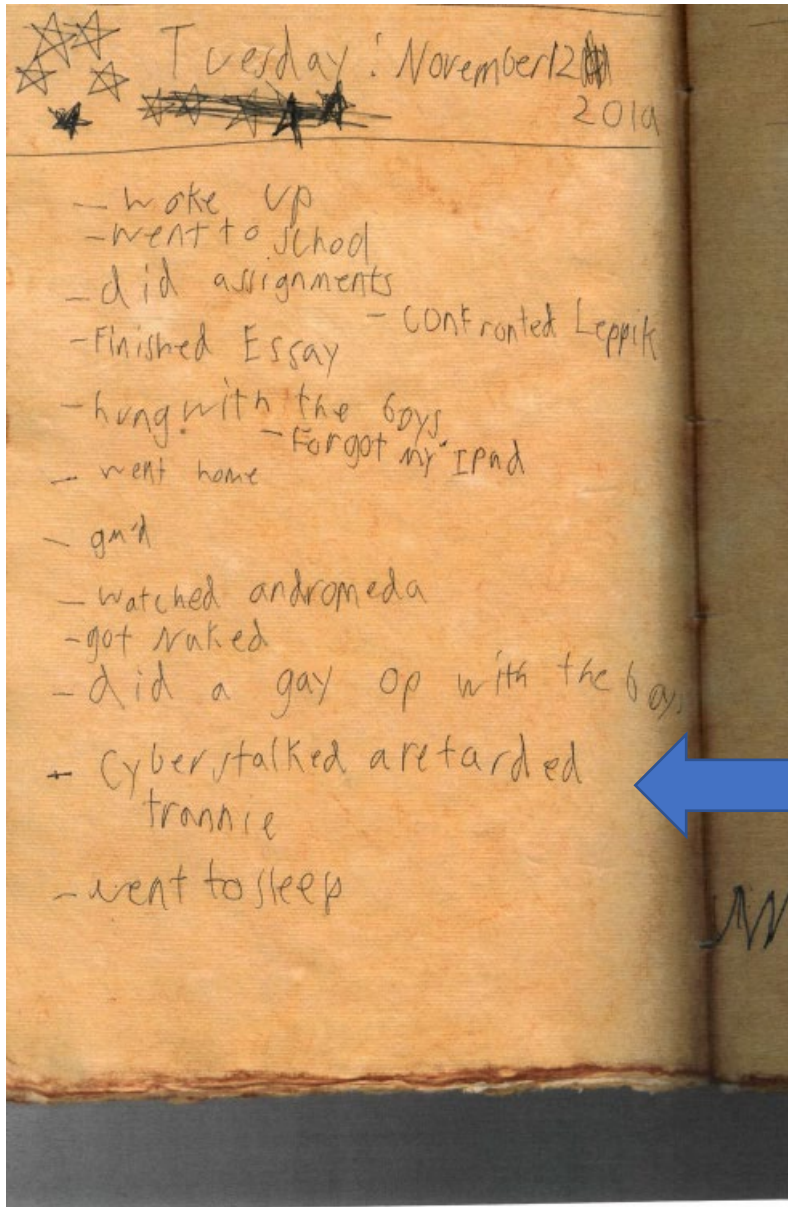 Tuesday: November 12
2019
- woke up
- went to school
- did assignments
- confronted Leppik
- Finished Essay
- hung with the boys
- Forgot my IPad
- went home
- watched andromeda
- got Naked
- did a gay op with the boys
- Cyber stalked a retarded
trannie
- went to sleep